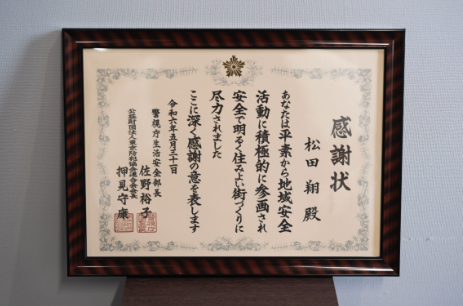 感謝状
松田 翔 殿
あなたは平素から地域安全
活動に積極的に参画され
安全で明るく住みよい街づくりに
尽力されました
ここに深く感謝の意を表します
令和六年五月三十一日
警視庁生活安全部長
佐野裕子
公益財団法人東京防犯協会連合会会長
押見守康